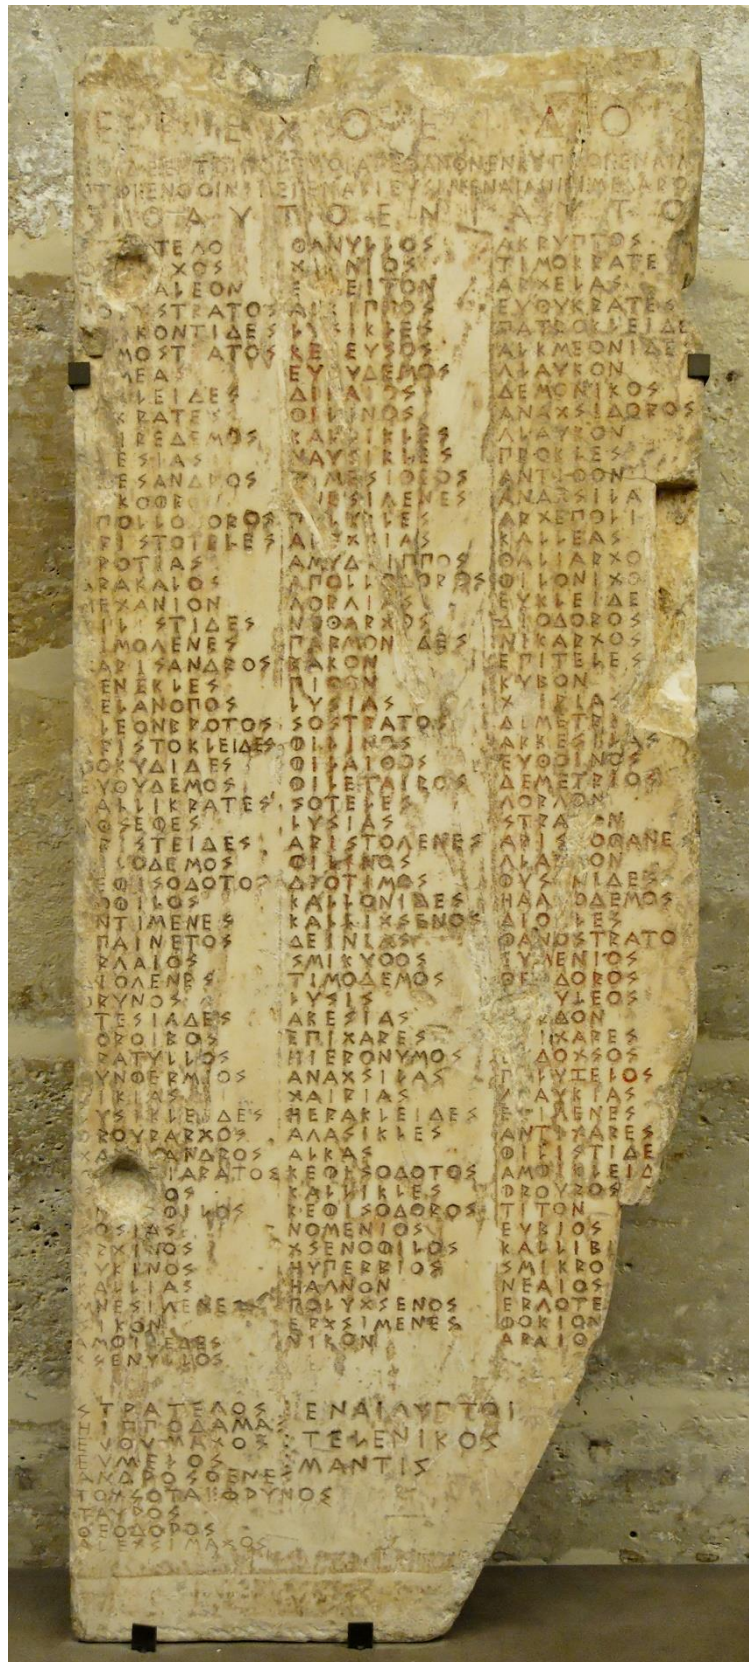 ΕΡΕΧΘΕΙΔΟ
ΗΟΙΔΕ ΕΝ ΤΟΙ ΠΟΛΕΜΟΙ ΑΠΕΘΑΝΟΝ ΕΝ ΚΥΠΡΟΙ ΕΝ ΑΙΓ
ΤΟΙ ΕΝ ΦΟΙΝΙΚΕΙ ΕΝ ΑΛΙΕΥΣΙΝ ΕΝ ΑΙΓΙΝΕΙ ΜΕΓΑΡΟ
ΤΟ ΑΥΤΟ ΕΝΙΑΥΤΟ
ΔΟΡΥΣΤΡΑΤΟΣ
ΔΡΑΚΟΝΤΙΔΕΣ
ΔΕΜΟΣΤΡΑΤΟΣ
ΑΠΟΛΛΟΔΟΡΟΣ
ΑΡΙΣΤΟΤΕΛΕΣ
ΠΡΟΤΙΑΣ
ΧΑΡΑΚΑΛΟΣ
ΜΕΧΑΝΙΟΝ
ΦΙΛΙΣΤΙΔΕΣ
ΤΙΜΟΓΕΝΕΣ
ΑΡΙΣΑΝΔΡΟΣ
ΜΕΝΕΚΛΕΣ
ΜΕΛΑΝΟΠΟΣ
ΚΛΕΟΝΒΡΟΤΟΣ
ΑΡΙΣΤΟΚΛΕΙΔΕΣ
ΘΟΚΥΔΙΔΕΣ
ΕΥΘΥΔΕΜΟΣ
ΚΑΛΛΙΚΡΑΤΕΣ
ΦΟΣΕΦΕΣ
ΑΡΙΣΤΕΙΔΕΣ
ΦΙΛΟΔΕΜΟΣ
ΚΕΦΙΣΟΔΟΤΟΣ
ΑΝΤΙΜΕΝΕΣ
ΕΠΑΙΝΕΤΟΣ
ΕΡΓΑΙΟΣ
ΚΟΡΥΝΟΣ
ΚΤΕΣΙΑΔΕΣ
ΚΟΡΟΙΒΟΣ
ΚΡΑΤΥΛΛΟΣ
ΣΥΝΦΕΡΜΙΟΣ
ΝΙΚΙΑΣ
ΛΥΣΙΚΛΕΙΔΕΣ
ΦΡΟΥΡΑΡΧΟΣ
ΣΟΣΙΑΣ
ΑΡΧΙΝΟΣ
ΛΥΚΙΝΟΣ
ΚΑΛΛΙΑΣ
ΜΝΕΣΙΓΕΝΕΣ
ΣΙΚΟΝ
ΑΜΟΙΓΕΔΕΣ
ΧΣΕΝΥΛΛΟΣ
ΦΑΝΥΛΛΟΣ
ΧΙΟΝΙΟΣ
ΕΡΑΣΕΙΤΟΝ
ΑΛΚΙΠΠΟΣ
ΛΥΣΙΚΛΕΣ
ΚΕΛΕΥΣΟΣ
ΕΥΘΥΔΕΜΟΣ
ΔΙΚΑΙΟΣ
ΦΙΛΙΝΟΣ
ΚΑΛΛΙΚΛΕΣ
ΝΑΥΣΙΚΛΕΣ
ΤΙΜΕΣΙΘΕΟΣ
ΜΝΕΣΙΓΕΝΕΣ
ΠΑΤΑΙΚΛΕΣ
ΑΙΣΧΚΙΑΣ
ΑΜΥΔΡΙΠΠΟΣ
ΑΠΟΛΛΟΔΟΡΟΣ
ΓΟΡΓΙΑΣ
ΝΟΘΑΡΧΟΣ
ΠΑΡΜΟΝΙΔΕΣ
ΒΑΚΟΝ
ΠΙΘΟΝ
ΛΥΣΙΑΣ
ΣΟΣΤΡΑΤΟΣ
ΦΙΛΙΝΟΣ
ΦΙΛΑΙΘΟΣ
ΦΙΛΕΤΑΙΡΟΣ
ΣΟΤΕΛΕΣ
ΛΥΣΙΑΣ
ΑΡΙΣΤΟΓΕΝΕΣ
ΦΙΛΙΝΟΣ
ΔΙΟΤΙΜΟΣ
ΚΑΛΛΟΝΙΔΕΣ
ΚΑΛΛΙΧΣΕΝΟΣ
ΔΕΙΝΙΑΣ
ΣΜΙΚΥΘΟΣ
ΤΙΜΟΔΕΜΟΣ
ΛΥΣΙΣ
ΑΚΕΣΙΑΣ
ΕΠΙΧΑΡΕΣ
ΗΙΕΡΟΝΥΜΟΣ
ΑΝΑΧΣΙΛΑΣ
ΧΑΙΡΙΑΣ
ΗΕΡΑΚΛΕΙΔΕΣ
ΑΓΑΣΙΚΛΕΣ
ΑΛΚΑΣ
ΚΕΦΙΣΟΔΟΤΟΣ
ΚΑΛΛΙΚΛΕΣ
ΚΕΦΙΣΟΔΟΡΟΣ
ΝΟΜΕΝΙΟΣ
ΧΣΕΝΟΦΙΛΟΣ
ΗΥΠΕΡΒΙΟΣ
ΗΑΓΝΟΝ
ΠΟΛΥΧΣΕΝΟΣ
ΕΡΧΣΙΜΕΝΕΣ
ΝΙΚΟΝ
ΑΚΡΥΠΤΟΣ
ΤΙΜΟΚΡΑΤΕ
ΑΡΧΕΛΑΣ
ΕΥΘΥΚΡΑΤΕΣ
ΠΑΤΡΟΚΛΕΙΔΕ
ΑΛΚΜΕΟΝΙΔΕ
ΓΛΑΥΚΟΝ
ΔΕΜΟΝΙΚΟΣ
ΑΝΑΧΣΙΔΟΡΟΣ
ΓΛΑΥΚΟΝ
ΠΡΟΚΛΕΣ
ΑΝΤΙΦΟΝ
ΑΝΑΧΣΙΛΑ
ΑΡΧΕΠΟΛΙ
ΚΑΛΛΕΑΣ
ΦΑΛΙΑΡΧΟ
ΦΙΛΟΝΙΧΟ
ΕΥΚΛΕΙΔΕ
ΔΙΟΔΟΡΟΣ
ΝΙΚΑΡΧΟΣ
ΕΠΙΤΕΛΕΣ
ΚΥΒΟΝ
ΧΑΙΡΙΑΣ
ΔΙΜΕΤΡΙ
ΑΡΚΕΣΙΛΑΣ
ΕΥΘΟΙΝΟΣ
ΔΕΜΕΤΡΙΟΣ
ΓΟΡΓΟΝ
ΣΤΡΑΤΟΝ
ΑΡΙΣΤΟΦΑΝΕΣ
ΓΛΑΥΚΟΝ
ΦΥΣΟΝΙΔΕΣ
ΗΑΓΝΟΔΕΜΟΣ
ΔΙΟΚΛΕΣ
ΦΑΝΟΣΤΡΑΤΟ
ΕΥΜΕΝΙΟΣ
ΘΕΟΔΟΡΟΣ
ΕΥΔΟΧΣΟΣ
ΓΛΥΚΕΛΟΣ
ΓΛΑΥΚΙΑΣ
ΕΠΙΓΕΝΕΣ
ΑΝΤΙΧΑΡΕΣ
ΦΙΛΙΣΤΙΔΕ
ΑΜΦΙΚΛΕΙΔ
ΦΡΟΥΡΟΣ
ΤΙΤΟΝ
ΕΥΒΙΟΣ
ΚΑΛΛΙΒΙ
ΣΜΙΚΡΟ
ΝΕΑΙΟΣ
ΕΡΓΟΤΕ
ΦΟΚΙΟΝ
ΑΡΑΙΟ
ΣΤΡΑΤΕΓΟΣ
ΗΙΠΠΟΔΑΜΑΣ
ΕΥΘΥΜΑΧΟΣ
ΕΥΜΕΛΟΣ
ΑΝΔΡΟΣΘΕΝΕΣ
ΤΟΧΣΟΤΑΙ ΦΡΥΝΟΣ
ΤΑΥΡΟΣ
ΘΕΟΔΟΡΟΣ
ΑΛΕΧΣΙΜΑΧΟΣ
ΕΝ ΑΙΓΥΠΤΟΙ
ΤΕΛΕΝΙΚΟΣ
ΜΑΝΤΙΣ